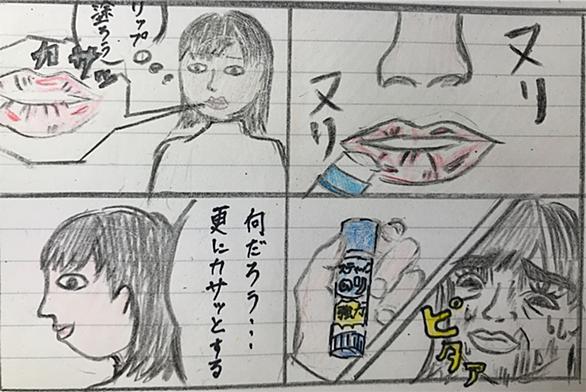 リップ
塗ろう
カサッ
ヌリ
ヌリ
何だろう・・・
更にカサッとする
スティック
のり
強力
ピタァ